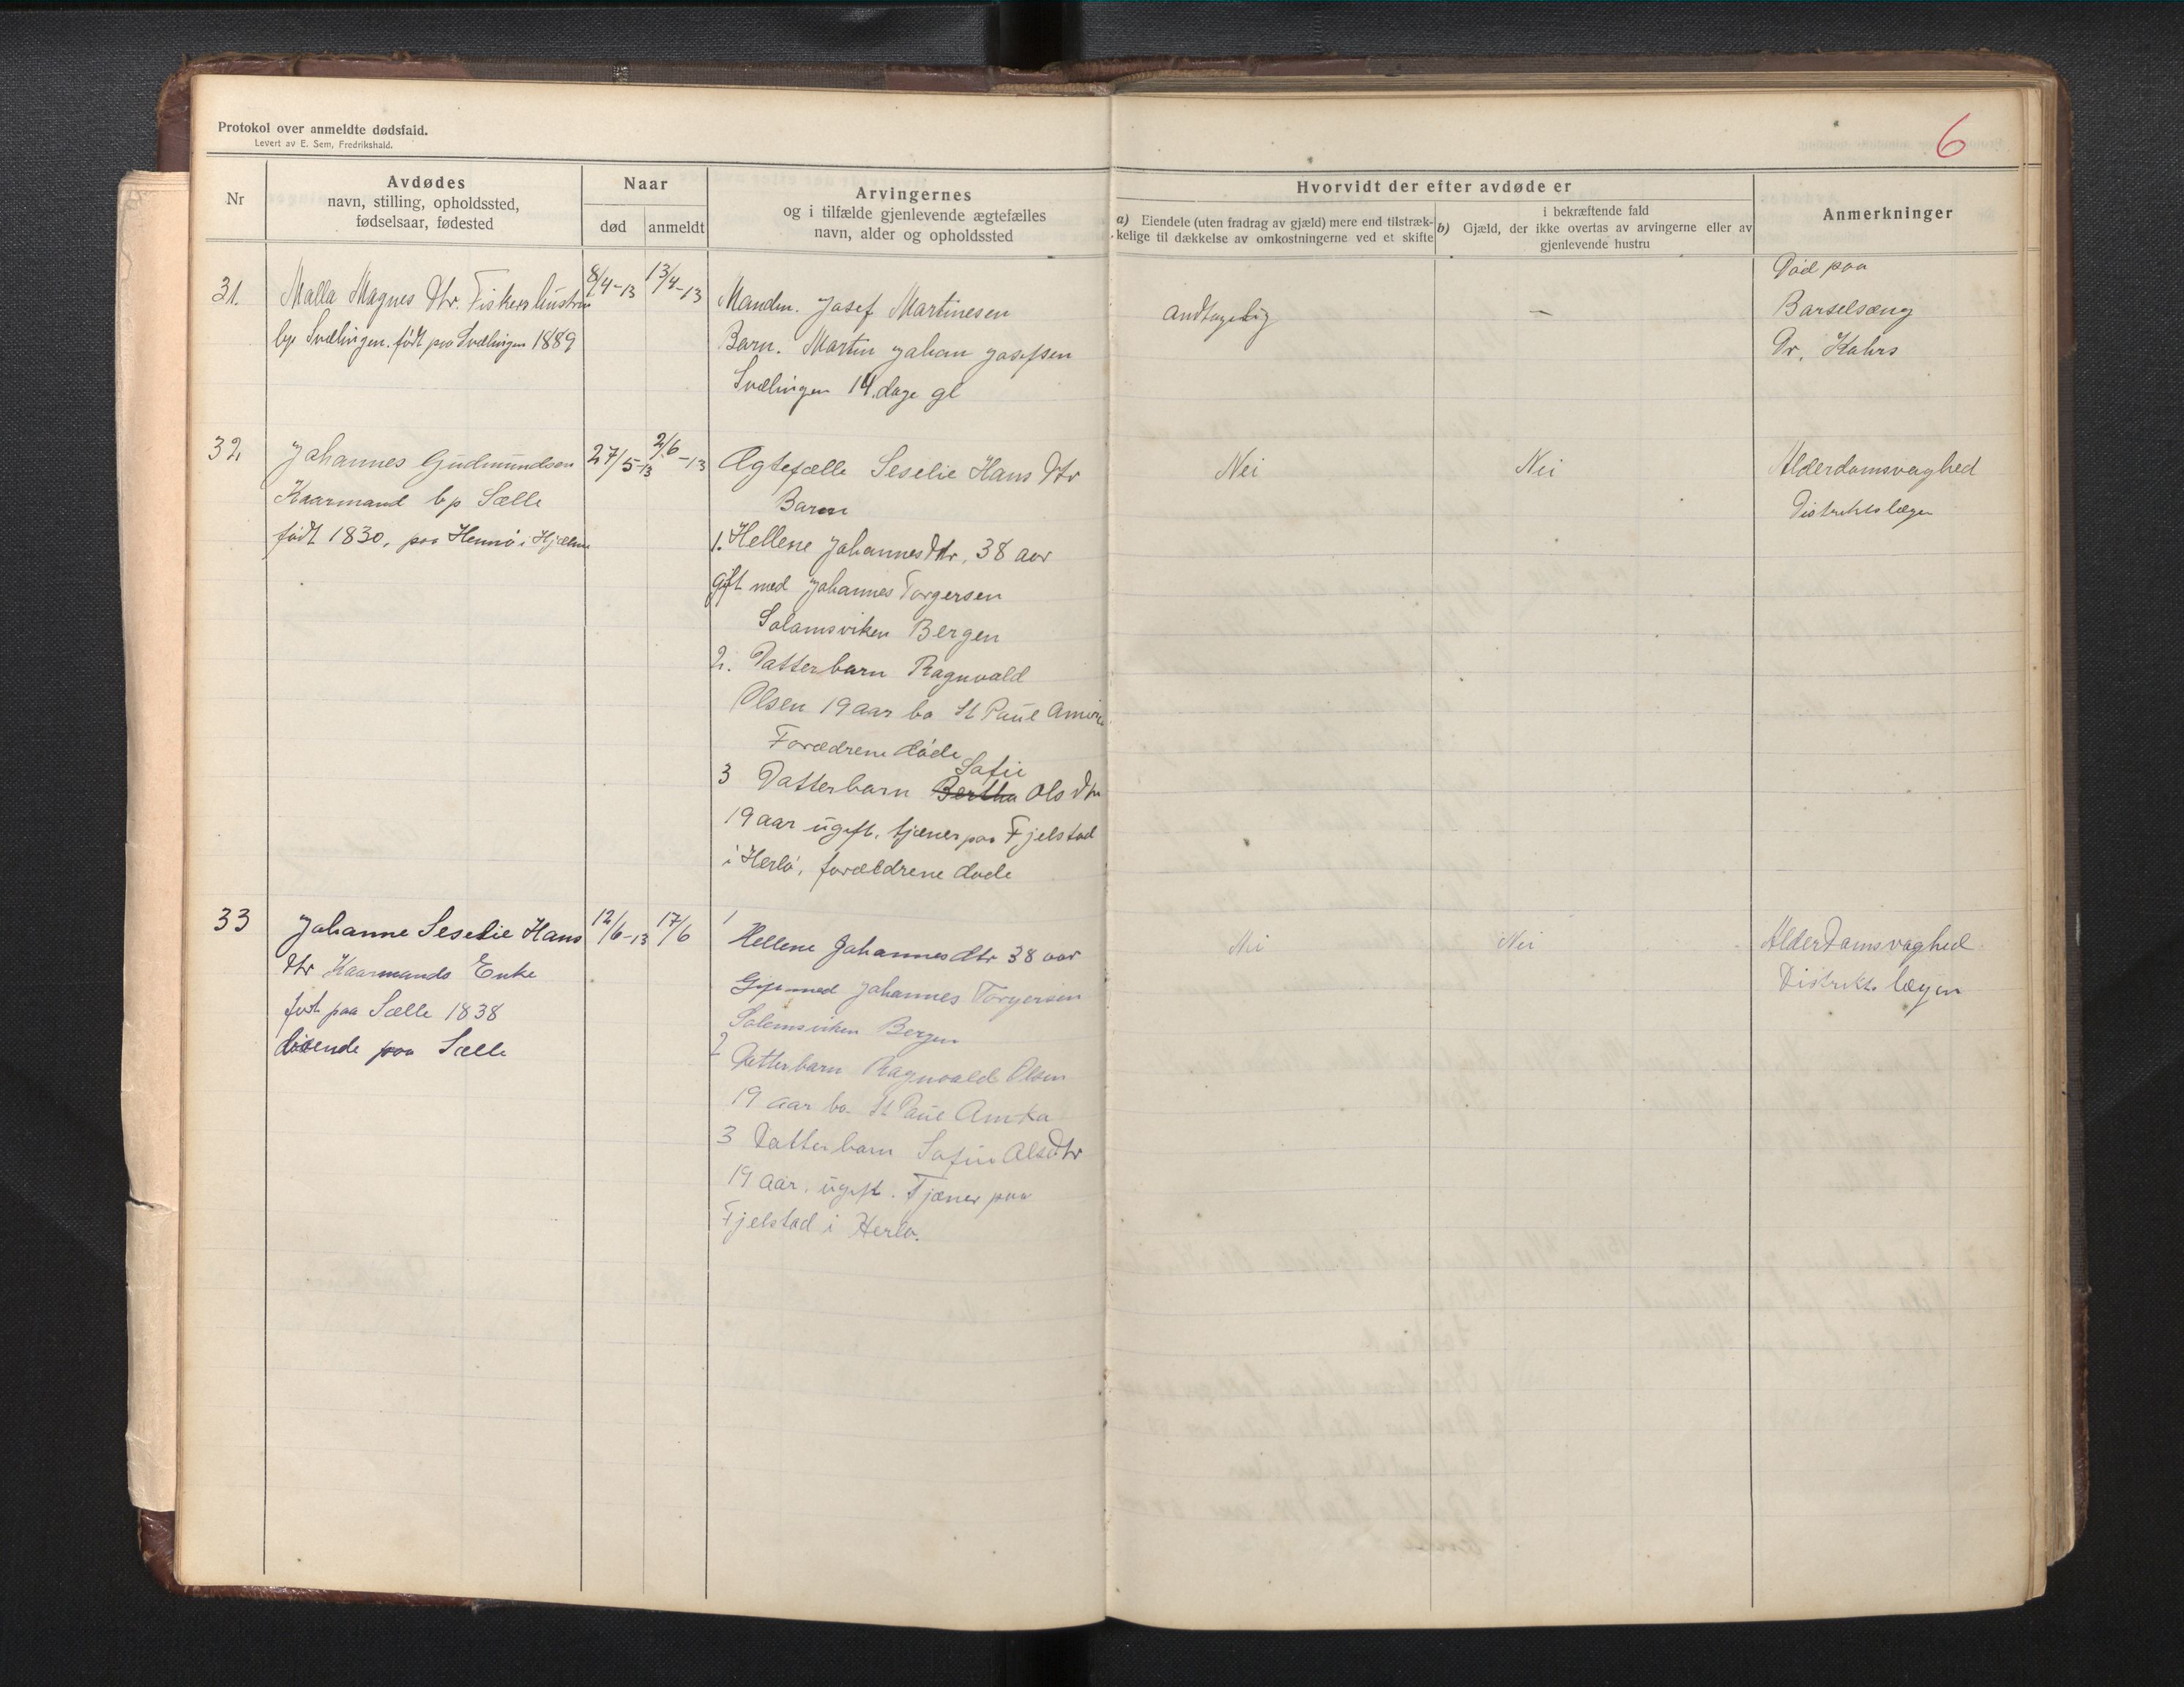 Protokol over anmeldte dødsfald.
Levert av E. Sem, Fredrikshald.
6
Nr
Avdødes
navn, stilling, opholdssted,
fødselsaar, fødested
Naar
død
anmeldt
Arvingernes
og i tilfælde gjenlevende ægtefælles
navn, alder og opholdssted
Hvorvidt der efter avdøde er
a) Eiendele (uten fradrag av gjæld) mere end tilstræk-
kelige til dækkelse av omkostningerne ved et skifte
i bekræftende fald
b) Gjæld, der ikke overtas av arvingerne eller av
gjenlevende hustru
Anmerkninger
31.
Malla Magnes Dtr. Fiskerhustru
bp Svælingen. født paa Svælingen 1889
8/4-13
13/4-13
Manden. Josef Martinesen
Barn. Martin Johan Josefsen
Svælingen 14. dage gl
Antagelig
—
Død paa
Barselsæng
Dr. Kahrs
32
Johannes Gudmundsen
Kaarmand bp Sælle
født 1830, paa Hennø i Hjelme
27/5-13
2/6-13
Ægtefælle Seselie Hans Dtr
Barn
1. Hellene JohannesDtr, 38 aar
gift med Johannes Torgersen
Solamsviken Bergen
2. Datterbarn Ragnvald
Olsen 19 aar bo St Paul Amerika
Forædrene døde
Sofie
3 Datterbarn Bertha Ols Dtr
19 aar ugift, tjener paa Fjelstad
i Herlø, forældrene døde
Nei
Nei
Alderdomsvaghed
Distriktslægen
33
Johanne Seselie Hans
Dtr Kaarmands Enke
født paa Sælle 1838
boende paa Sælle
12/6-13
17/6
1
Hellene Johannes dtr 38 aar
Gift med Johannes Torgersen
Solemsviken Bergen
2
Datterbarn Ragnvald Olsen
19 aar bo St Paul Amka
3 Datterbarn Sofie OlsDtr
19 aar, ugift. Tjener paa
Fjelstad i Herlø.
Nei
Nei
Alderdamsvaghed
Distrikts lægen